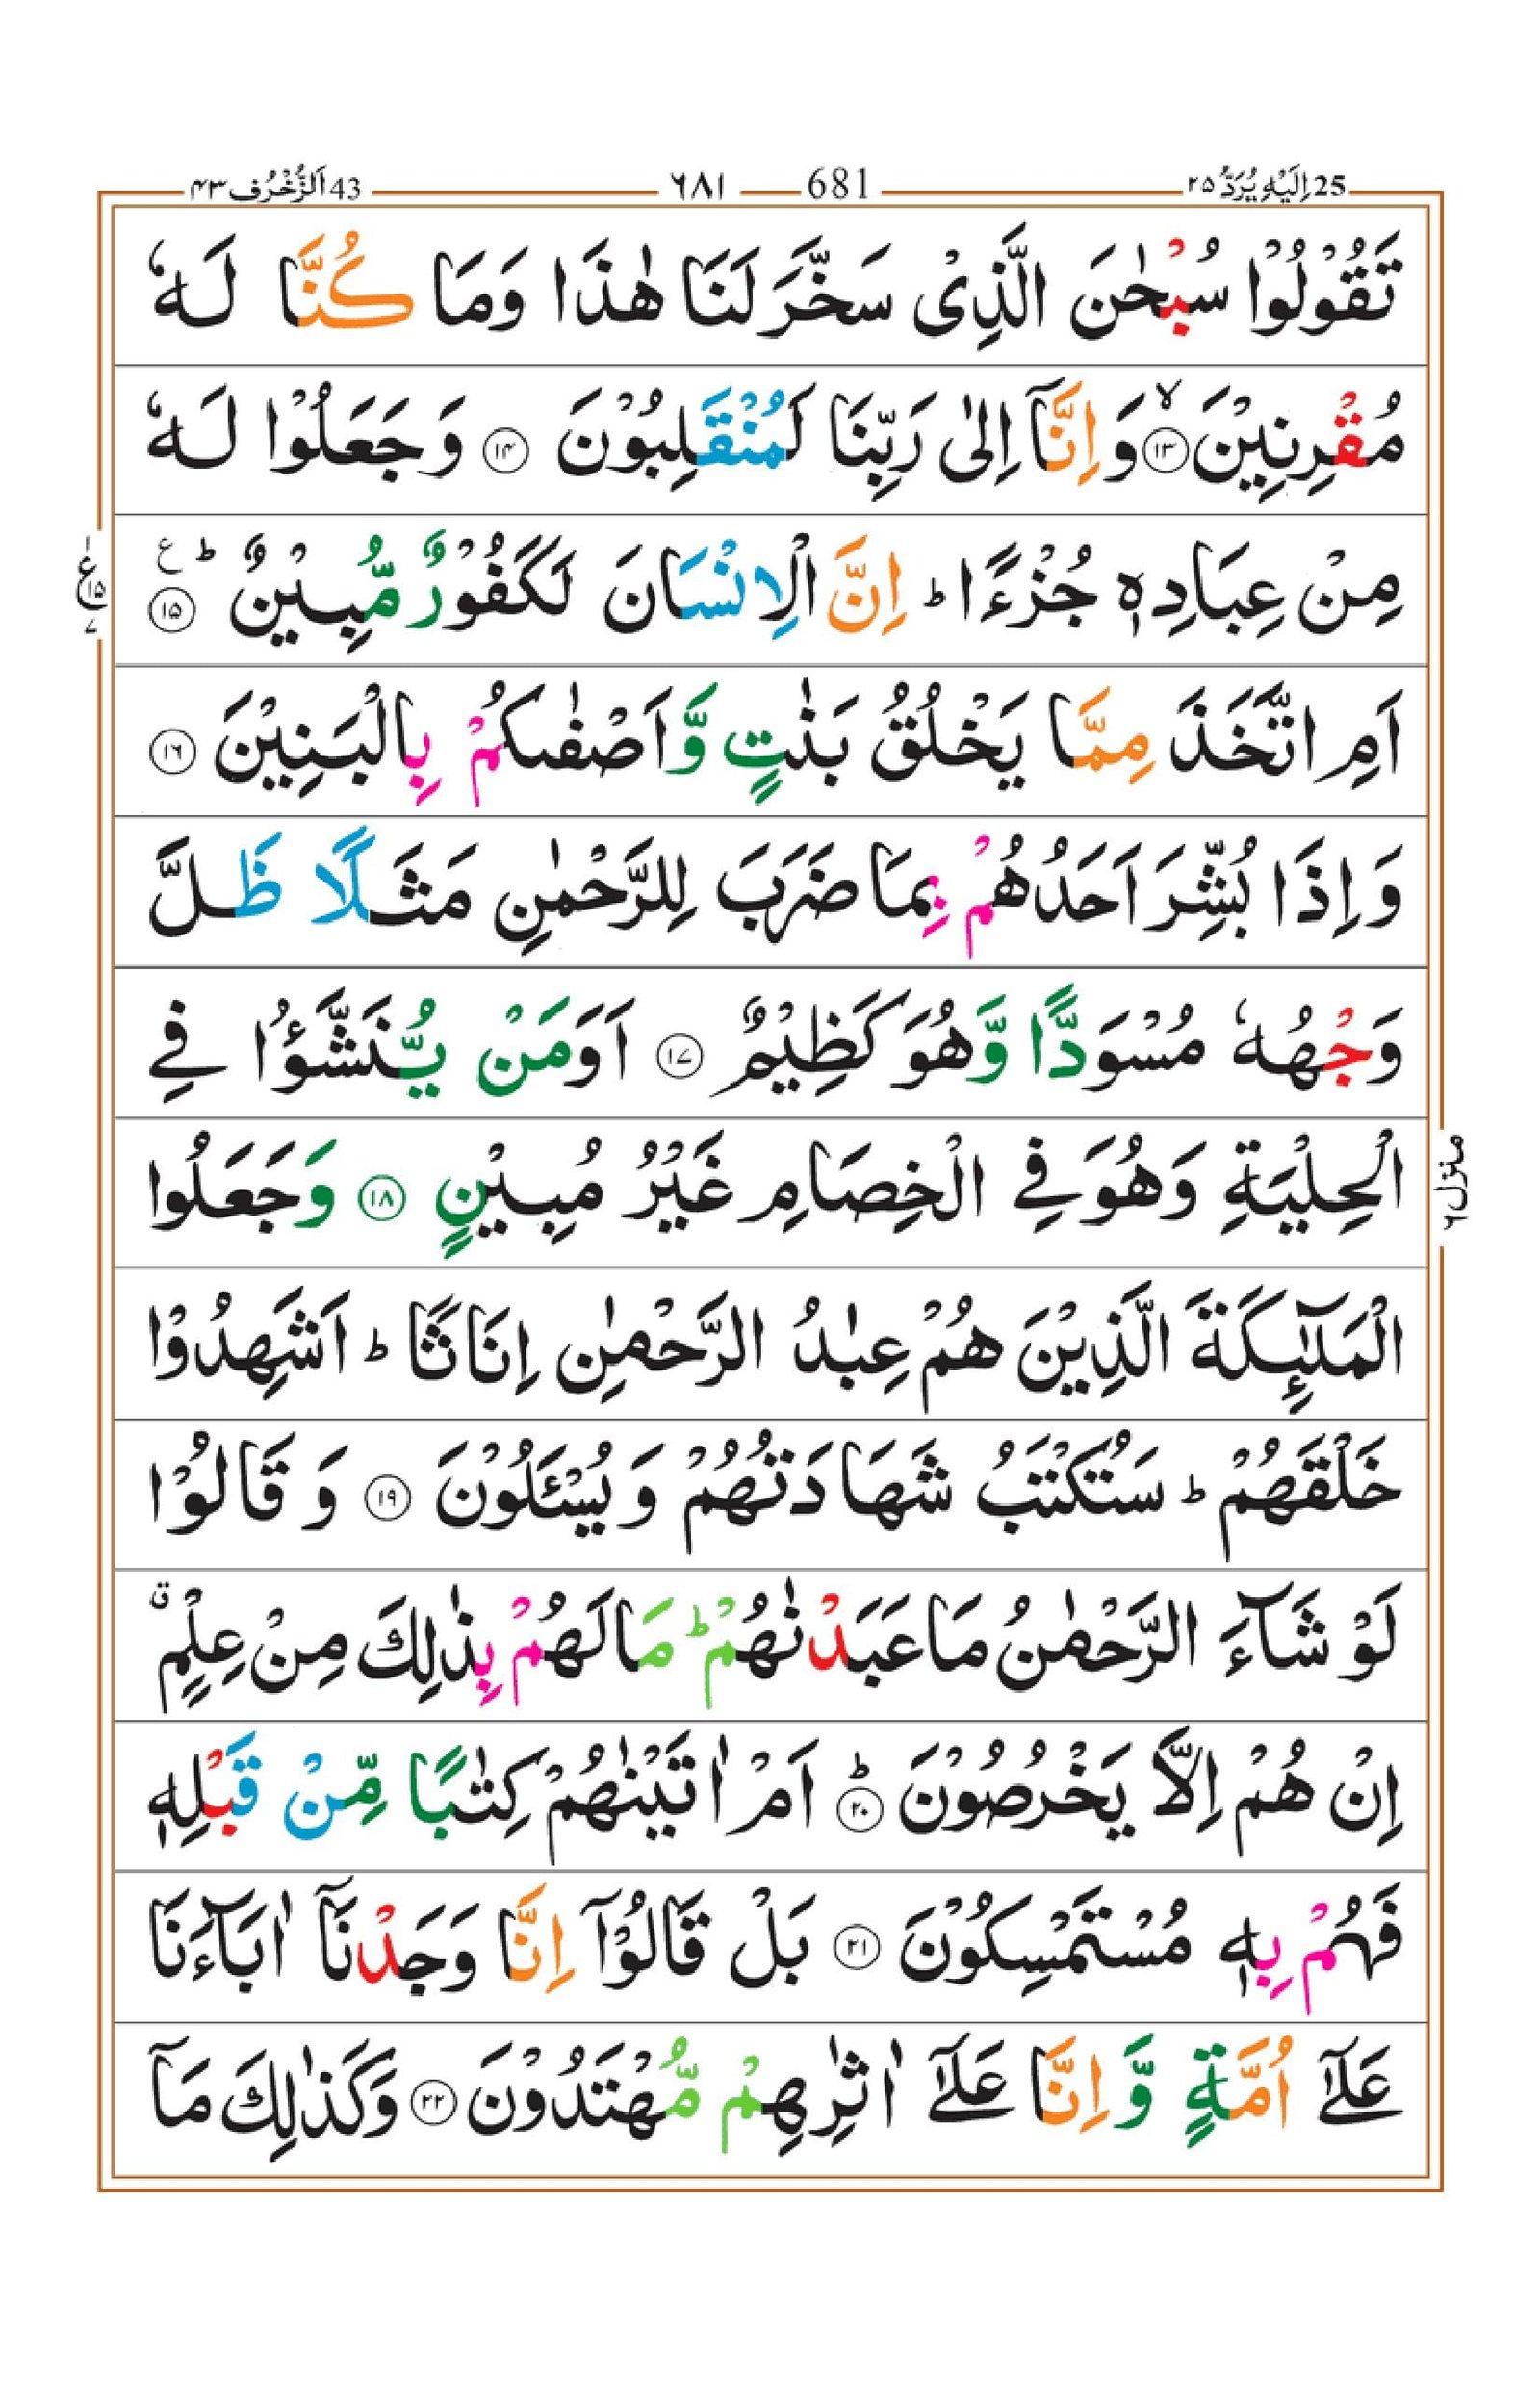 25 اِلَیْهِ یُرَدُّ ۲۵
681 ۶۸۱
43 اَلزُّخْرُف ۴۳
تَقُوْلُوْا سُبْحٰنَ الَّذِیْ سَخَّرَ لَنَا هٰذَا وَمَا كُنَّا لَهٗ
مُقْرِنِیْنَ ۙ‏﴿۱۳﴾ وَاِنَّاۤ اِلٰی رَبِّنَا لَمُنْقَلِبُوْنَ ﴿۱۴﴾ وَجَعَلُوْا لَهٗ
مِنْ عِبَادِهٖ جُزْءًا ؕ اِنَّ الْاِنْسَانَ لَكَفُوْرٌ مُّبِیْنٌ ؕ ﴿۱۵﴾ ع
ع ۱ ۱۵ ۷
اَمِ اتَّخَذَ مِمَّا یَخْلُقُ بَنٰتٍ وَّاَصْفٰىكُمْ بِالْبَنِیْنَ ﴿۱۶﴾
وَاِذَا بُشِّرَ اَحَدُهُمْ بِمَا ضَرَبَ لِلرَّحْمٰنِ مَثَلًا ظَلَّ
وَجْهُهٗ مُسْوَدًّا وَّهُوَ كَظِیْمٌ ﴿۱۷﴾ اَوَمَنْ یُّنَشَّؤُا فِی
الْحِلْیَةِ وَهُوَ فِی الْخِصَامِ غَیْرُ مُبِیْنٍ ﴿۱۸﴾ وَجَعَلُوا
منزل ۶
الْمَلٰٓىِٕكَةَ الَّذِیْنَ هُمْ عِبٰدُ الرَّحْمٰنِ اِنَاثًا ؕ اَشَهِدُوْا
خَلْقَهُمْ ؕ سَتُكْتَبُ شَهَادَتُهُمْ وَیُسْـَٔلُوْنَ ﴿۱۹﴾ وَقَالُوْا
لَوْ شَآءَ الرَّحْمٰنُ مَا عَبَدْنٰهُمْ ؕ مَا لَهُمْ بِذٰلِكَ مِنْ عِلْمٍ ۗ
اِنْ هُمْ اِلَّا یَخْرُصُوْنَ ؕ ﴿۲۰﴾ اَمْ اٰتَیْنٰهُمْ كِتٰبًا مِّنْ قَبْلِهٖ
فَهُمْ بِهٖ مُسْتَمْسِكُوْنَ ﴿۲۱﴾ بَلْ قَالُوْۤا اِنَّا وَجَدْنَاۤ اٰبَآءَنَا
عَلٰۤی اُمَّةٍ وَّاِنَّا عَلٰۤی اٰثٰرِهِمْ مُّهْتَدُوْنَ ﴿۲۲﴾ وَكَذٰلِكَ مَاۤ